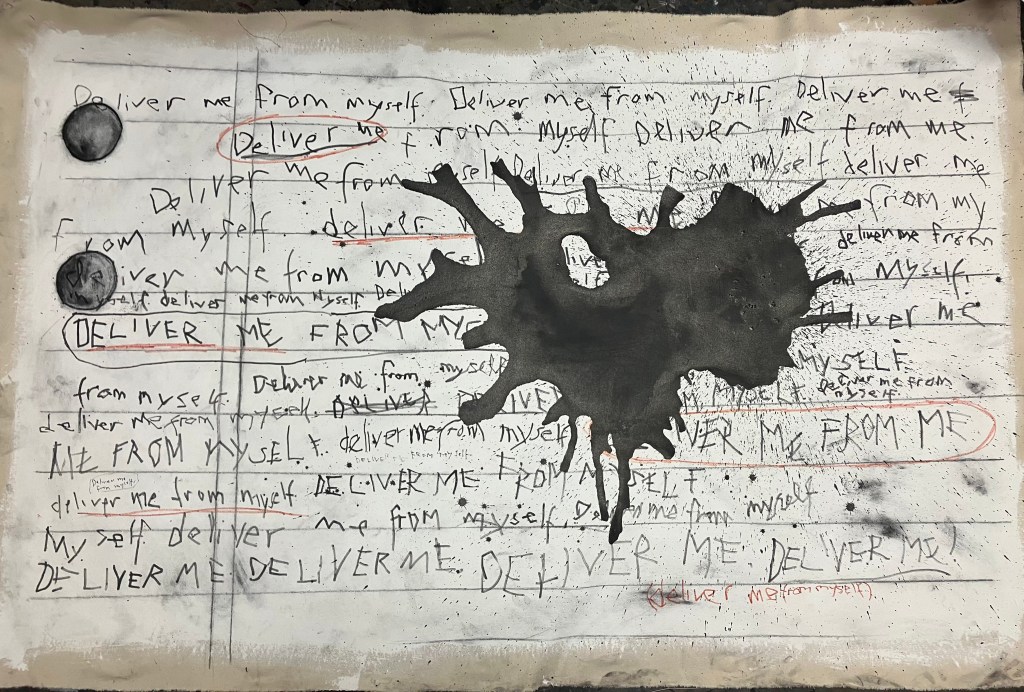 Deliver me from myself. Deliver me from myself. Deliver me f
Deliver me from myself Deliver me from me
Deliver me from myself Deliver me from myself deliver me
from myself. deliver me from my
deliver me from
Deliver me from myse liver myself.
myself deliver me from myself Deli
DELIVER ME FROM MYSE Deliver me
from myself. Deliver me from myself MYSELF
Deliver me from myself.
deliver me from myself. DELIVER DELIVE M MYSELF
ME FROM MYSELF. deliver me from myself VER ME FROM ME
DELIVER ME FROM MYSELF
Deliver me from myself
deliver me from myself. DELIVER ME FROM MYSELF
Myself deliver me from myself. De me from myself
DELIVER ME DELIVER ME DELIVER ME DELIVER ME!
(Deliver me from myself)